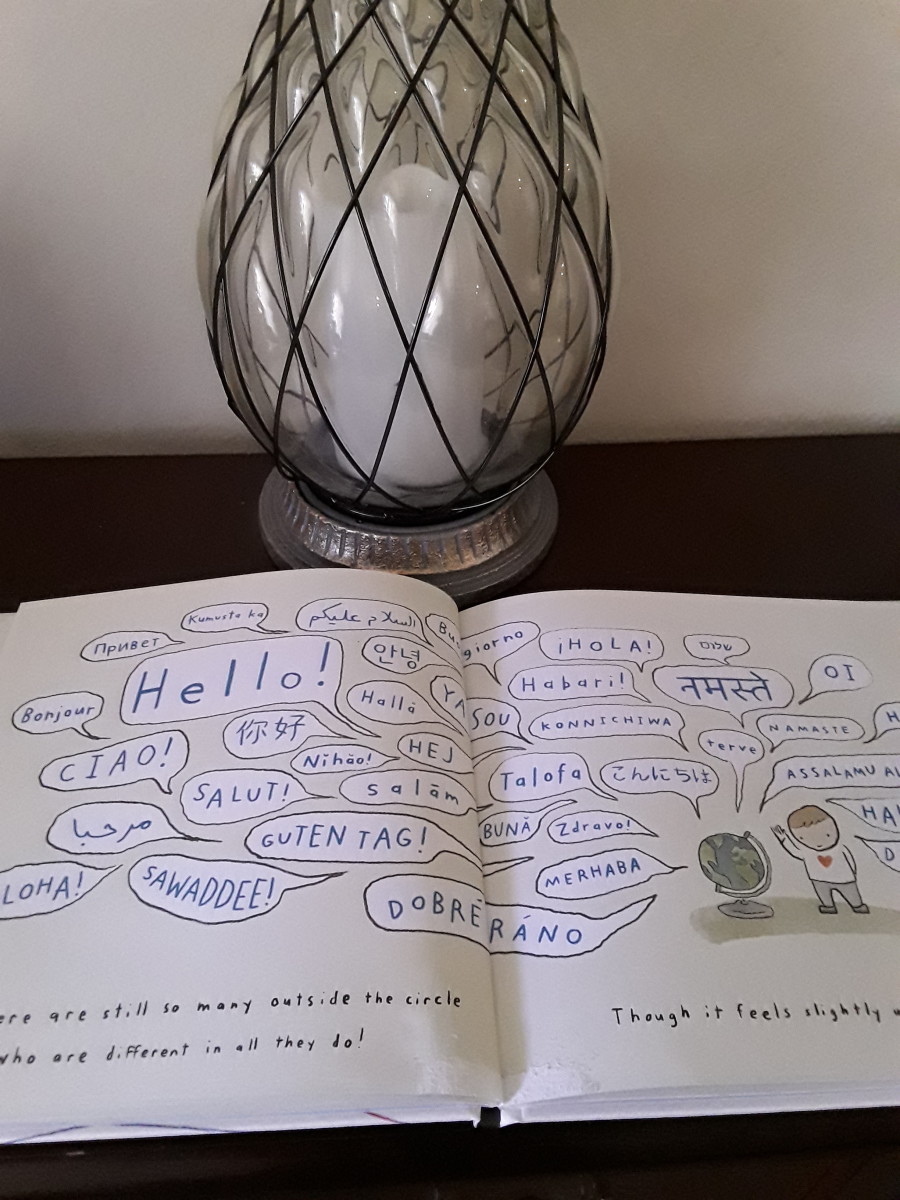 Kumusta ka
السلام عليكم
Привет
Hello!
안녕
Hallå
Bonjour
你好
CIAO!
Nǐhǎo!
HEJ
SALUT!
salām
مرحبا
GUTEN TAG!
LOHA!
SAWADDEE!
DOBRÉ RÁNO
giorno
¡HOLA!
שלום
Habari!
नमस्ते
OI
YA SOU
KONNICHIWA
terve
NAMASTE
Talofa
こんにちは
ASSALAMU
BUNĂ
Zdravo!
MERHABA
ere are still so many outside the circle
who are different in all they do!
Though it feels slightly